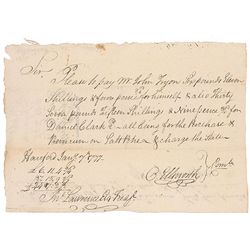 Sir Please to pay Mr. John Tryon Six pounds Eleven
Shillings & four pence for himself & also Thirty
Seven pounds Fifteen Shillings & Nine pence for
Daniel Clark all being for the Purchase &
Premium on Salt Petre & charge the State
Hartford Jany 7th 1777
£6.11.4
O Ellsworth Comtt
Jno Lawrence Esq Treasr